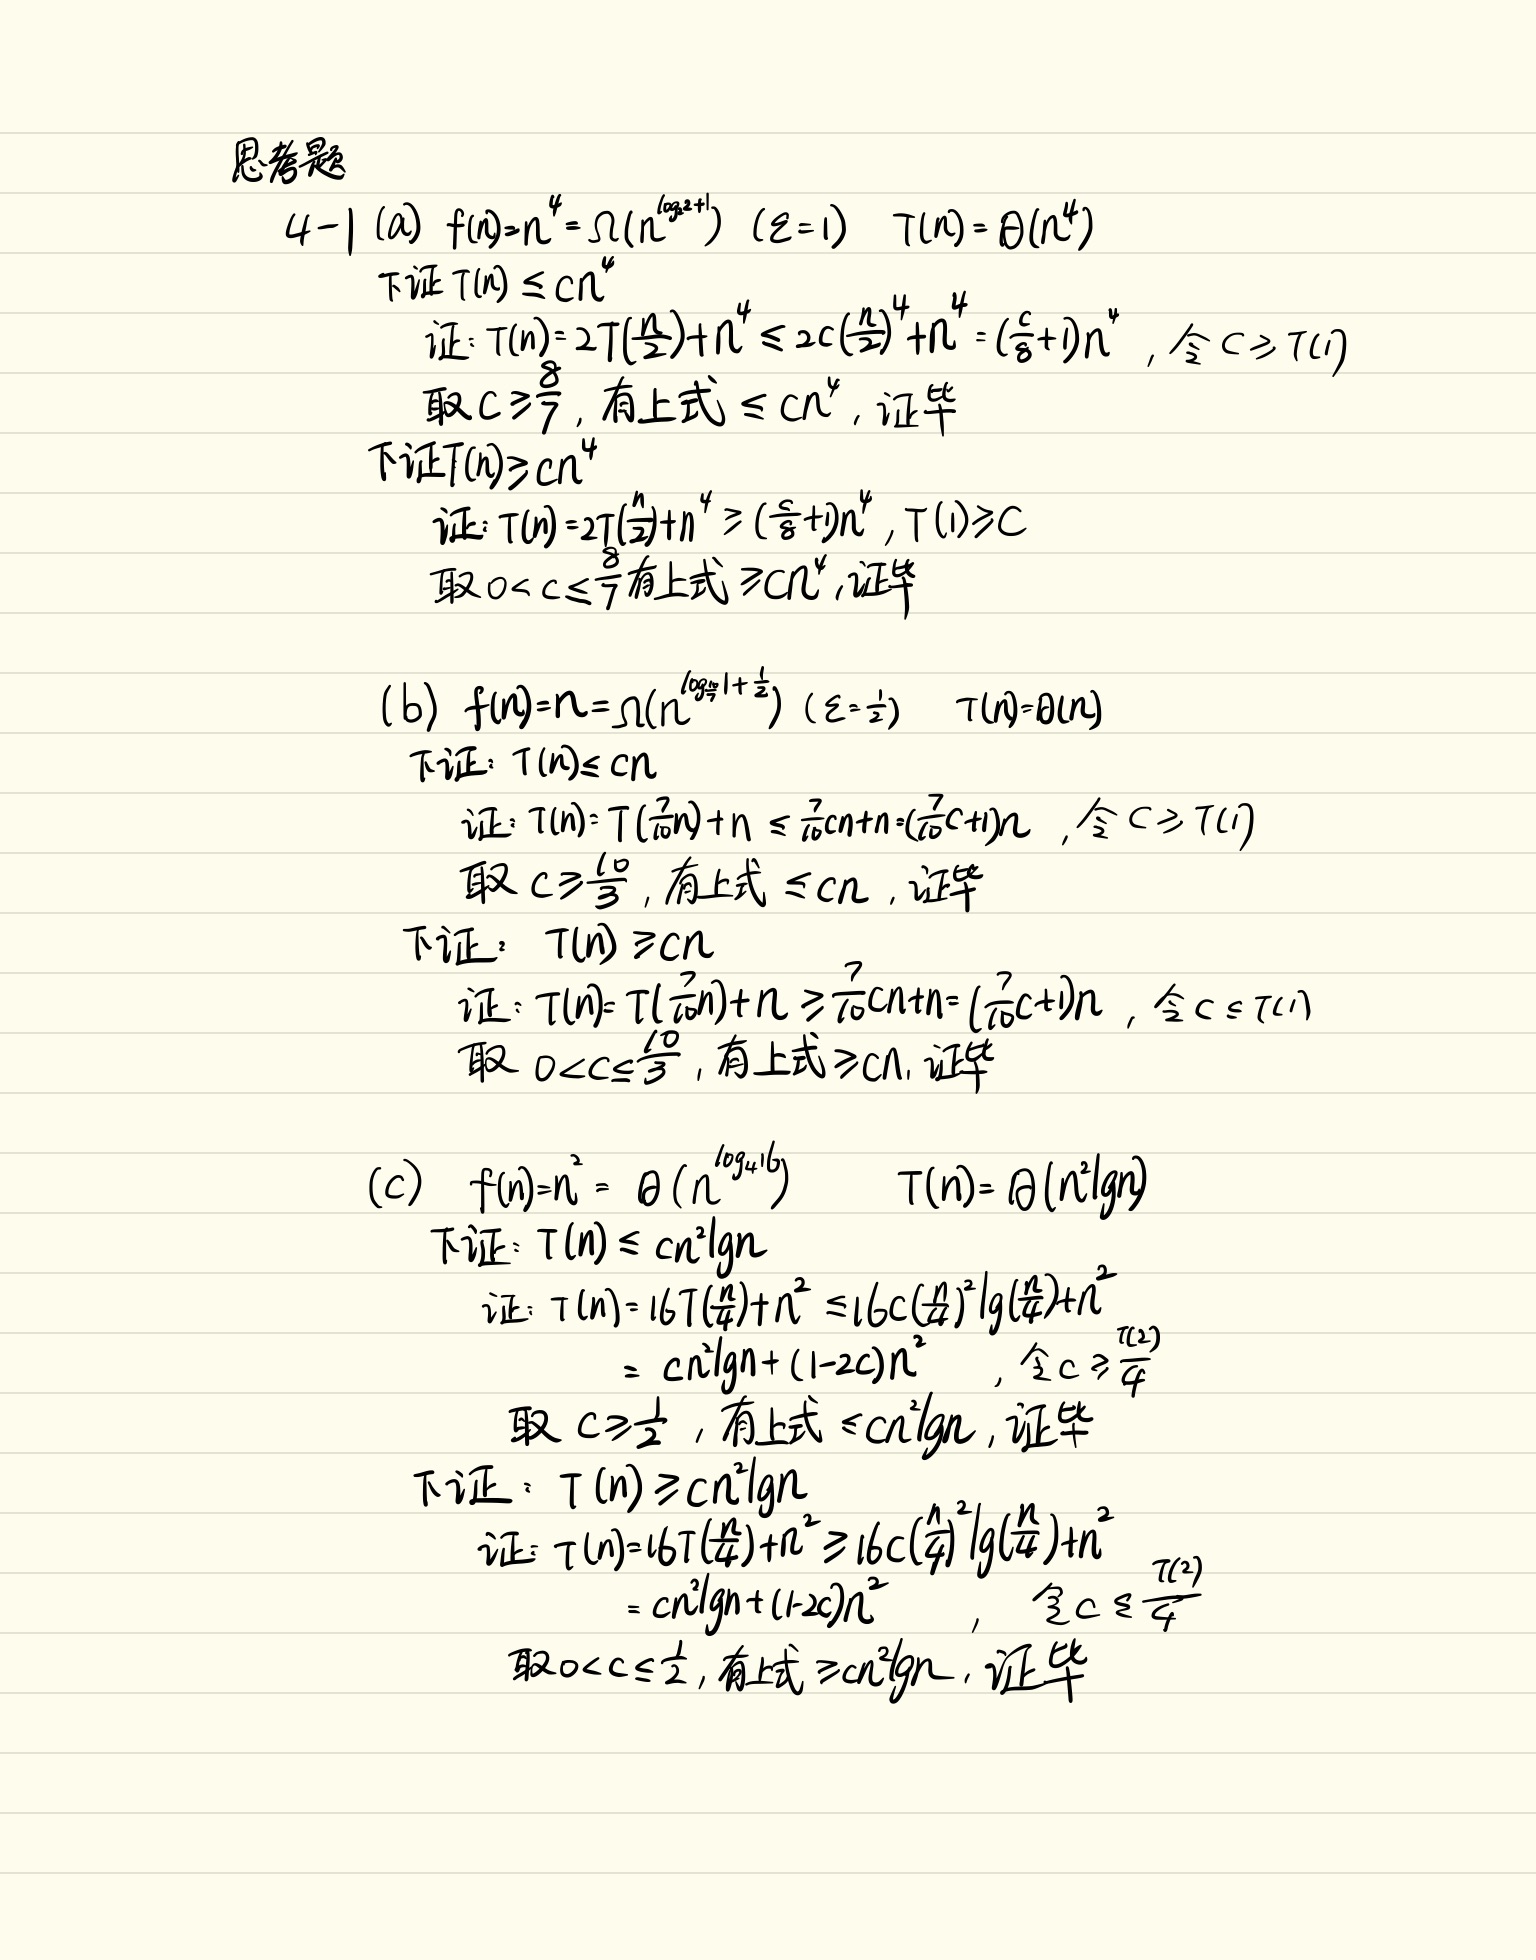 思考题
4-1 (a) f(n)=n⁴=Ω(n^(log₂2+1)) (ε=1) T(n)=θ(n⁴)
下证 T(n) ≤ cn⁴
证: T(n)=2T(n/2)+n⁴ ≤ 2c(n/2)⁴+n⁴=(c/8+1)n⁴ , 令 C ≥ T(1)
取 C ≥ 8/7, 有上式 ≤ cn⁴, 证毕
下证T(n) ≥ cn⁴
证: T(n)=2T(n/2)+n⁴ ≥ (c/8+1)n⁴, T(1) ≥ C
取 0<c≤8/7 有上式 ≥ cn⁴, 证毕
(b) f(n)=n=Ω(n^(log_(10/7)1+1/2)) (ε=1/2) T(n)=θ(n)
下证: T(n) ≤ cn
证: T(n)=T(7/10n)+n ≤ 7/10cn+n=(7/10c+1)n , 令 C ≥ T(1)
取 C ≥ 10/3, 有上式 ≤ cn, 证毕
下证: T(n) ≥ cn
证: T(n)=T(7/10n)+n ≥ 7/10cn+n=(7/10c+1)n , 令 C ≤ T(1)
取 0<c≤10/3, 有上式 ≥ cn, 证毕
(c) f(n)=n²=θ(n^(log₄16)) T(n)=θ(n²lgn)
下证: T(n) ≤ cn²lgn
证: T(n)=16T(n/4)+n² ≤ 16c(n/4)²lg(n/4)+n²
= cn²lgn+(1-2c)n² , 令 c ≥ T(2)/4
取 C ≥ 1/2, 有上式 ≤ cn²lgn, 证毕
下证: T(n) ≥ cn²lgn
证: T(n)=16T(n/4)+n² ≥ 16c(n/4)²lg(n/4)+n²
= cn²lgn+(1-2c)n² , 令 c ≤ T(2)/4
取 0<c≤1/2, 有上式 ≥ cn²lgn, 证毕